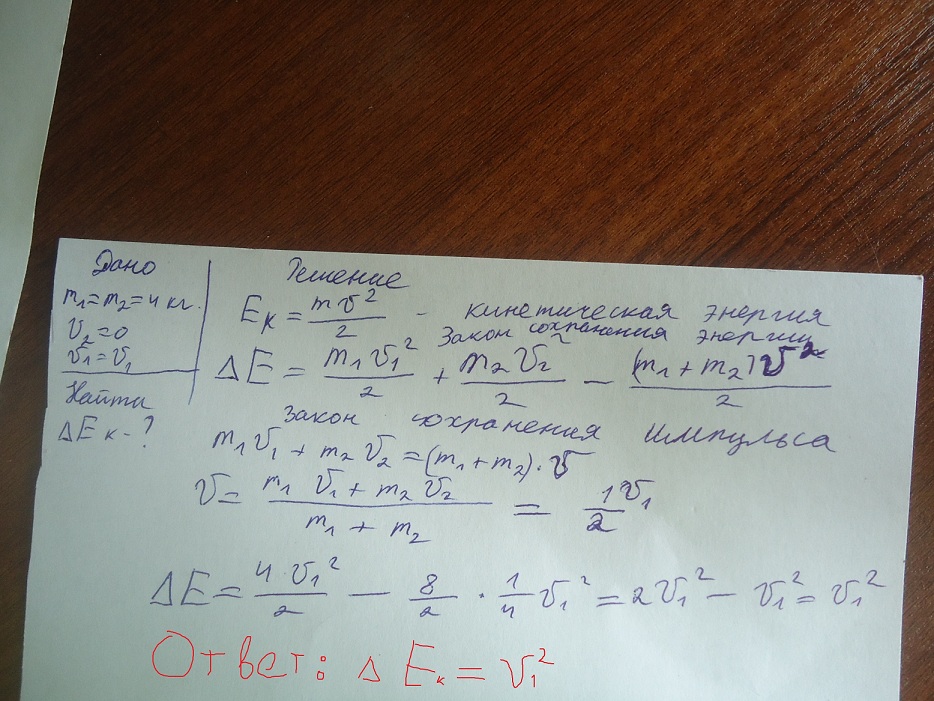 Дано
m₁=m₂=4 кг.
υ₂=0
υ₁=υ₁
Найти
ΔEк-?
Решение
Eк = mυ²/2 - кинетическая энергия
Закон сохранения энергии
ΔE = m₁υ₁²/2 + m₂υ₂²/2 - (m₁+m₂)υ²/2
Закон сохранения импульса
m₁υ₁ + m₂υ₂ = (m₁+m₂)·υ
υ = (m₁υ₁ + m₂υ₂)/(m₁ + m₂) = 1υ₁/2
ΔE = 4·υ₁²/2 - 8/2 · 1/4 υ₁² = 2υ₁² - υ₁² = υ₁²
Ответ: ΔEк = υ₁²